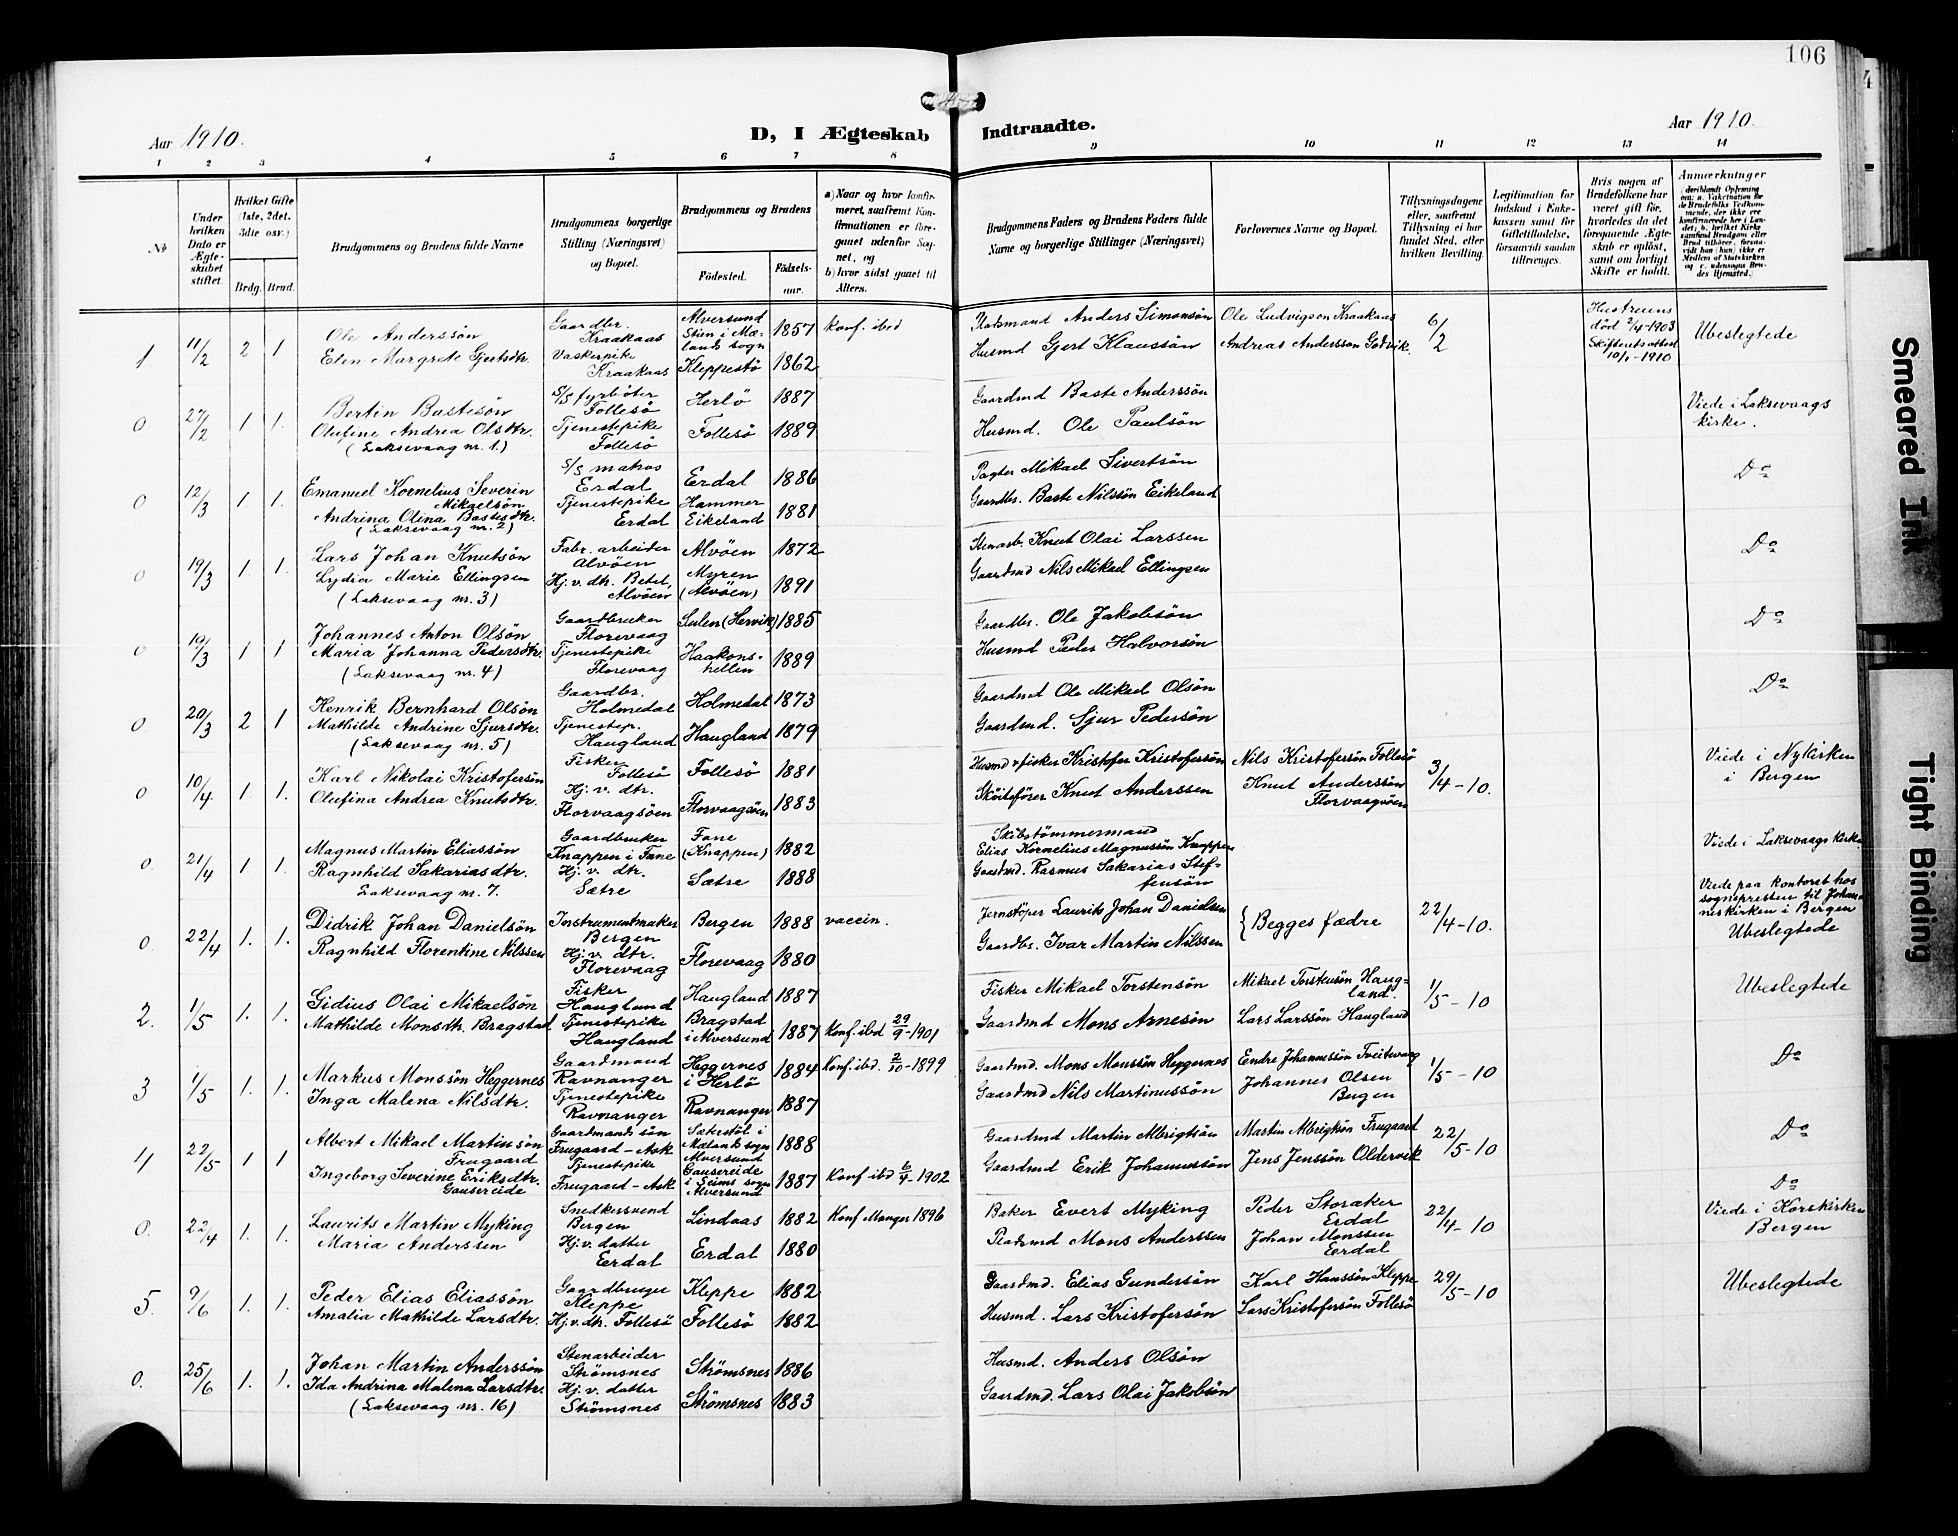 106
Aar 1910.
D, I Ægteskab Indtraadte.
Aar 1910.
1 2 3 4 5 6 7 8 9 10 11 12 13 14
No
Under hvilken Dato er Ægteskabet stiftet.
Hvilket Gifte (1ste, 2det, 3die osv.)
Brdg. Brud.
Brudgommens og Brudens fulde Navne
Brudgommens borgerlige Stilling (Næringsvei) og Bopæl.
Brudgommens og Brudens
Födested.
Födselsaar.
a) Naar og hvor konfirmeret, saafremt Konfirmationen er foregaaet udenfor Sognet, og
b) hvor sidst gaaet til Alters.
Brudgommens Faders og Brudens Faders fulde Navne og borgerlige Stillinger (Næringsvei)
Forlovernes Navne og Bopæl.
Tillysningsdagene eller, saafremt Tillysning ei har fundet Sted, efter hvilken Bevilling.
Legitimation for Indskud i Enkekassen samt for Giftetilladelse, forsaavidt saadan tiltrænges.
Hvis nogen af Brudefolkene har været gift för, hvorledes da det foregaaende Ægteskab er oplöst, samt om lovligt Skifte er holdt.
Anmerkninger
1 11/2 2 1
Ole Anderssön
Elen Margrete Gjertsdtr.
Gaardbr. Kraakaas
Vaskerpike Kraakaas
Alversund
Stien i Mælands sogn 1857 Konf. ibid
Kleppestö 1862
Anders Simonsön
Husmd Gjert Klaussön
Ole Ludvigsen Kraakaas
Andreas Anderssön Godvik
6/2
Hustruens död 2/4-1903
Skifteretsattest 10/1-1910
Ubeslegtede
0 27/2 1 1.
Bertin Bastesön
Olufine Andrea Olsdtr.
(Laksevaag nr. 1.)
S/S fyrböter Follesö
Tjenestepike Follesö
Herlö 1887
Follesö 1889
Gaardmd Baste Anderssön
Husmd. Ole Paulsön
Viede i Laksevaags kirke.
0 12/3 1. 1.
Emanuel Kornelius Severin Mikaelsön
Andrina Olina Bastesdtr.
(Laksevaag nr. 2)
S/S matros Erdal
Tjenestepike Erdal
Erdal 1886
Hammer Eikeland 1881
Pagter Mikael Sivertsön
Gaardbr. Baste Nilssön Eikeland
Do
0 19/3 1 1.
Lars Johan Knutsön
Lydia Marie Ellingsen
(Laksevaag nr. 3)
Fabr. arbeider Alvöen
Hj. v. dtr. Betel, Alvöen
Alvöen 1872
Myren (Alvöen) 1891
Stenarb. Knut Olai Larssen
Gaardmd Nils Mikael Ellingsen
Do
0 19/3 1 1
Johannes Anton Olsön
Maria Johanna Pedersdtr.
(Laksevaag nr. 4)
Gaardbruker Florevaag
Tjenestepike Florevaag
Sulen (Hervik) 1885
Haakonshellen 1889
Gaardbr. Ole Jakobsön
Husmd Peder Halvorsön
Do
0 20/3 2 1
Henrik Bernhard Olsön
Mathilde Andrine Sjursdtr.
(Laksevaag nr. 5)
Gaardbr. Holmedal
Tjenestep. Haugland
Holmedal 1873
Haugland 1879
Gaardmd Ole Mikael Olsön
Gaardmd. Sjur Pedersön
Do
0 10/4 1. 1.
Karl Nikolai Kristofersön
Olufina Andrea Knutsdtr.
Fisker Follesö
Hj. v. dtr. Florvaagsöen
Follesö 1881
Florvaagsöen 1883
Husmd & fisker Kristofer Kristofersön
Sköitefører Knut Anderssen
Nils Kristofersön Follesö
Knut Anderssön Florvaagöen
3/4-10.
Viede i Nykirken i Bergen
0. 21/4 1 1.
Magnus Martin Eliassön
Ragnhild Sakariasdtr.
Laksevaag nr. 7.
Gaardbruker Knappen i Fane
Hj. v. dtr. Sætre
Fane (Knappen) 1882
Sætre 1888
Skibstømmermand
Elias Kornelius Magnussön Knappen
Gaardmd. Rasmus Sakarias Steffensön
Viede i Laksevaags kirke
0. 22/4 1. 1.
Didrik Johan Danielsön
Ragnhild Florentine Nilssen
Instrumentmaker Bergen
Hj. v. dtr. Florevaag
Bergen 1888 vaccin.
Florevaag 1880
Jernstöper Laurits Johan Danielsen
Gaardbr. Ivar Martin Nilssen
{Begges fædre
22/4-10.
Viede paa kontoret hos sognepresten til Johanneskirken i Bergen
Ubeslegtede
2. 1/5 1. 1.
Gidius Olai Mikaelsön
Mathilde Monsdtr. Bragstad
Fisker Haugland
Tjenestepike Haugland
Haugland 1887
Bragstad i Alversund 1887 Konf. ibd 29/9-1901
Fisker Mikael Torstensön
Gaardmd Mons Arnesön
Mikael Torstensön Haugland.
Lars Larssön Haugland
1/5-10
Ubeslegtede
3 1/5 1. 1.
Markus Monssön Heggernes
Inga Malena Nilsdtr.
Gaardmand Ravnanger
Tjenestepike Ravnanger
Heggernes i Herlö 1884 Konf. ibd. 2/10-1899
Ravnanger 1887
Gaardmd. Mons Monssön Heggernes
Gaardmd Nils Martinussön
Endre Johannessön Tveitevaag
Johannes Olsen Bergen
1/5-10
Do
4 22/5 1 1
Albert Mikael Martinsön Frugaard
Ingeborg Severine Eriksdtr. Gausereide
Gaardmands sön Frugaard-Ask
Tjenestepike Frugaard-Ask
Sæterstöl i Mælands sogn Alversund 1888
Gausereide i Seims sogn Alversund 1887 Konf ibd 6/4-1902
Gaardmd Martin Albrigtsön
Gaardmd Erik Johannesön
Martin Albrigtsön Frugaard
Jens Jenssön Oldervik
22/5-10
Do
0. 22/4 1. 1.
Laurits Martin Myking
Maria Anderssen
Snedkersvend Bergen
Hj. v. datter Erdal
Lindaas 1882 Konf Manger 1896
Erdal 1880
Baker Evert Myking
Mons Anderssen
Peder Storaker Erdal
Johan Monssen Erdal
22/4-10
Do
Viede i Korskirken Bergen
5. 9/6 1. 1.
Peder Elias Eliassön
Amalia Mathilde Larsdtr.
Gaardbruger Kleppe
Hj. v. dtr. Follesö
Kleppe 1882
Follesö 1882
Gaardmd. Elias Gundersön
Husmd. Lars Kristofersön
Karl Hanssön Kleppe
Lars Kristofersön Follesö
29/5-10
Ubeslegtede
0. 25/6 1. 1.
Johan Martin Anderssön
Ida Andrina Malena Larsdtr.
(Laksevaag nr. 16)
Stenarbeider Strömsnes
Hj. v. datter Strömsnes
Strömsnes 1886
Strömsnes 1883
Husmd. Anders Olsön
Gaardmd. Lars Olai Jakobsön
Smeared Ink
Tight Binding